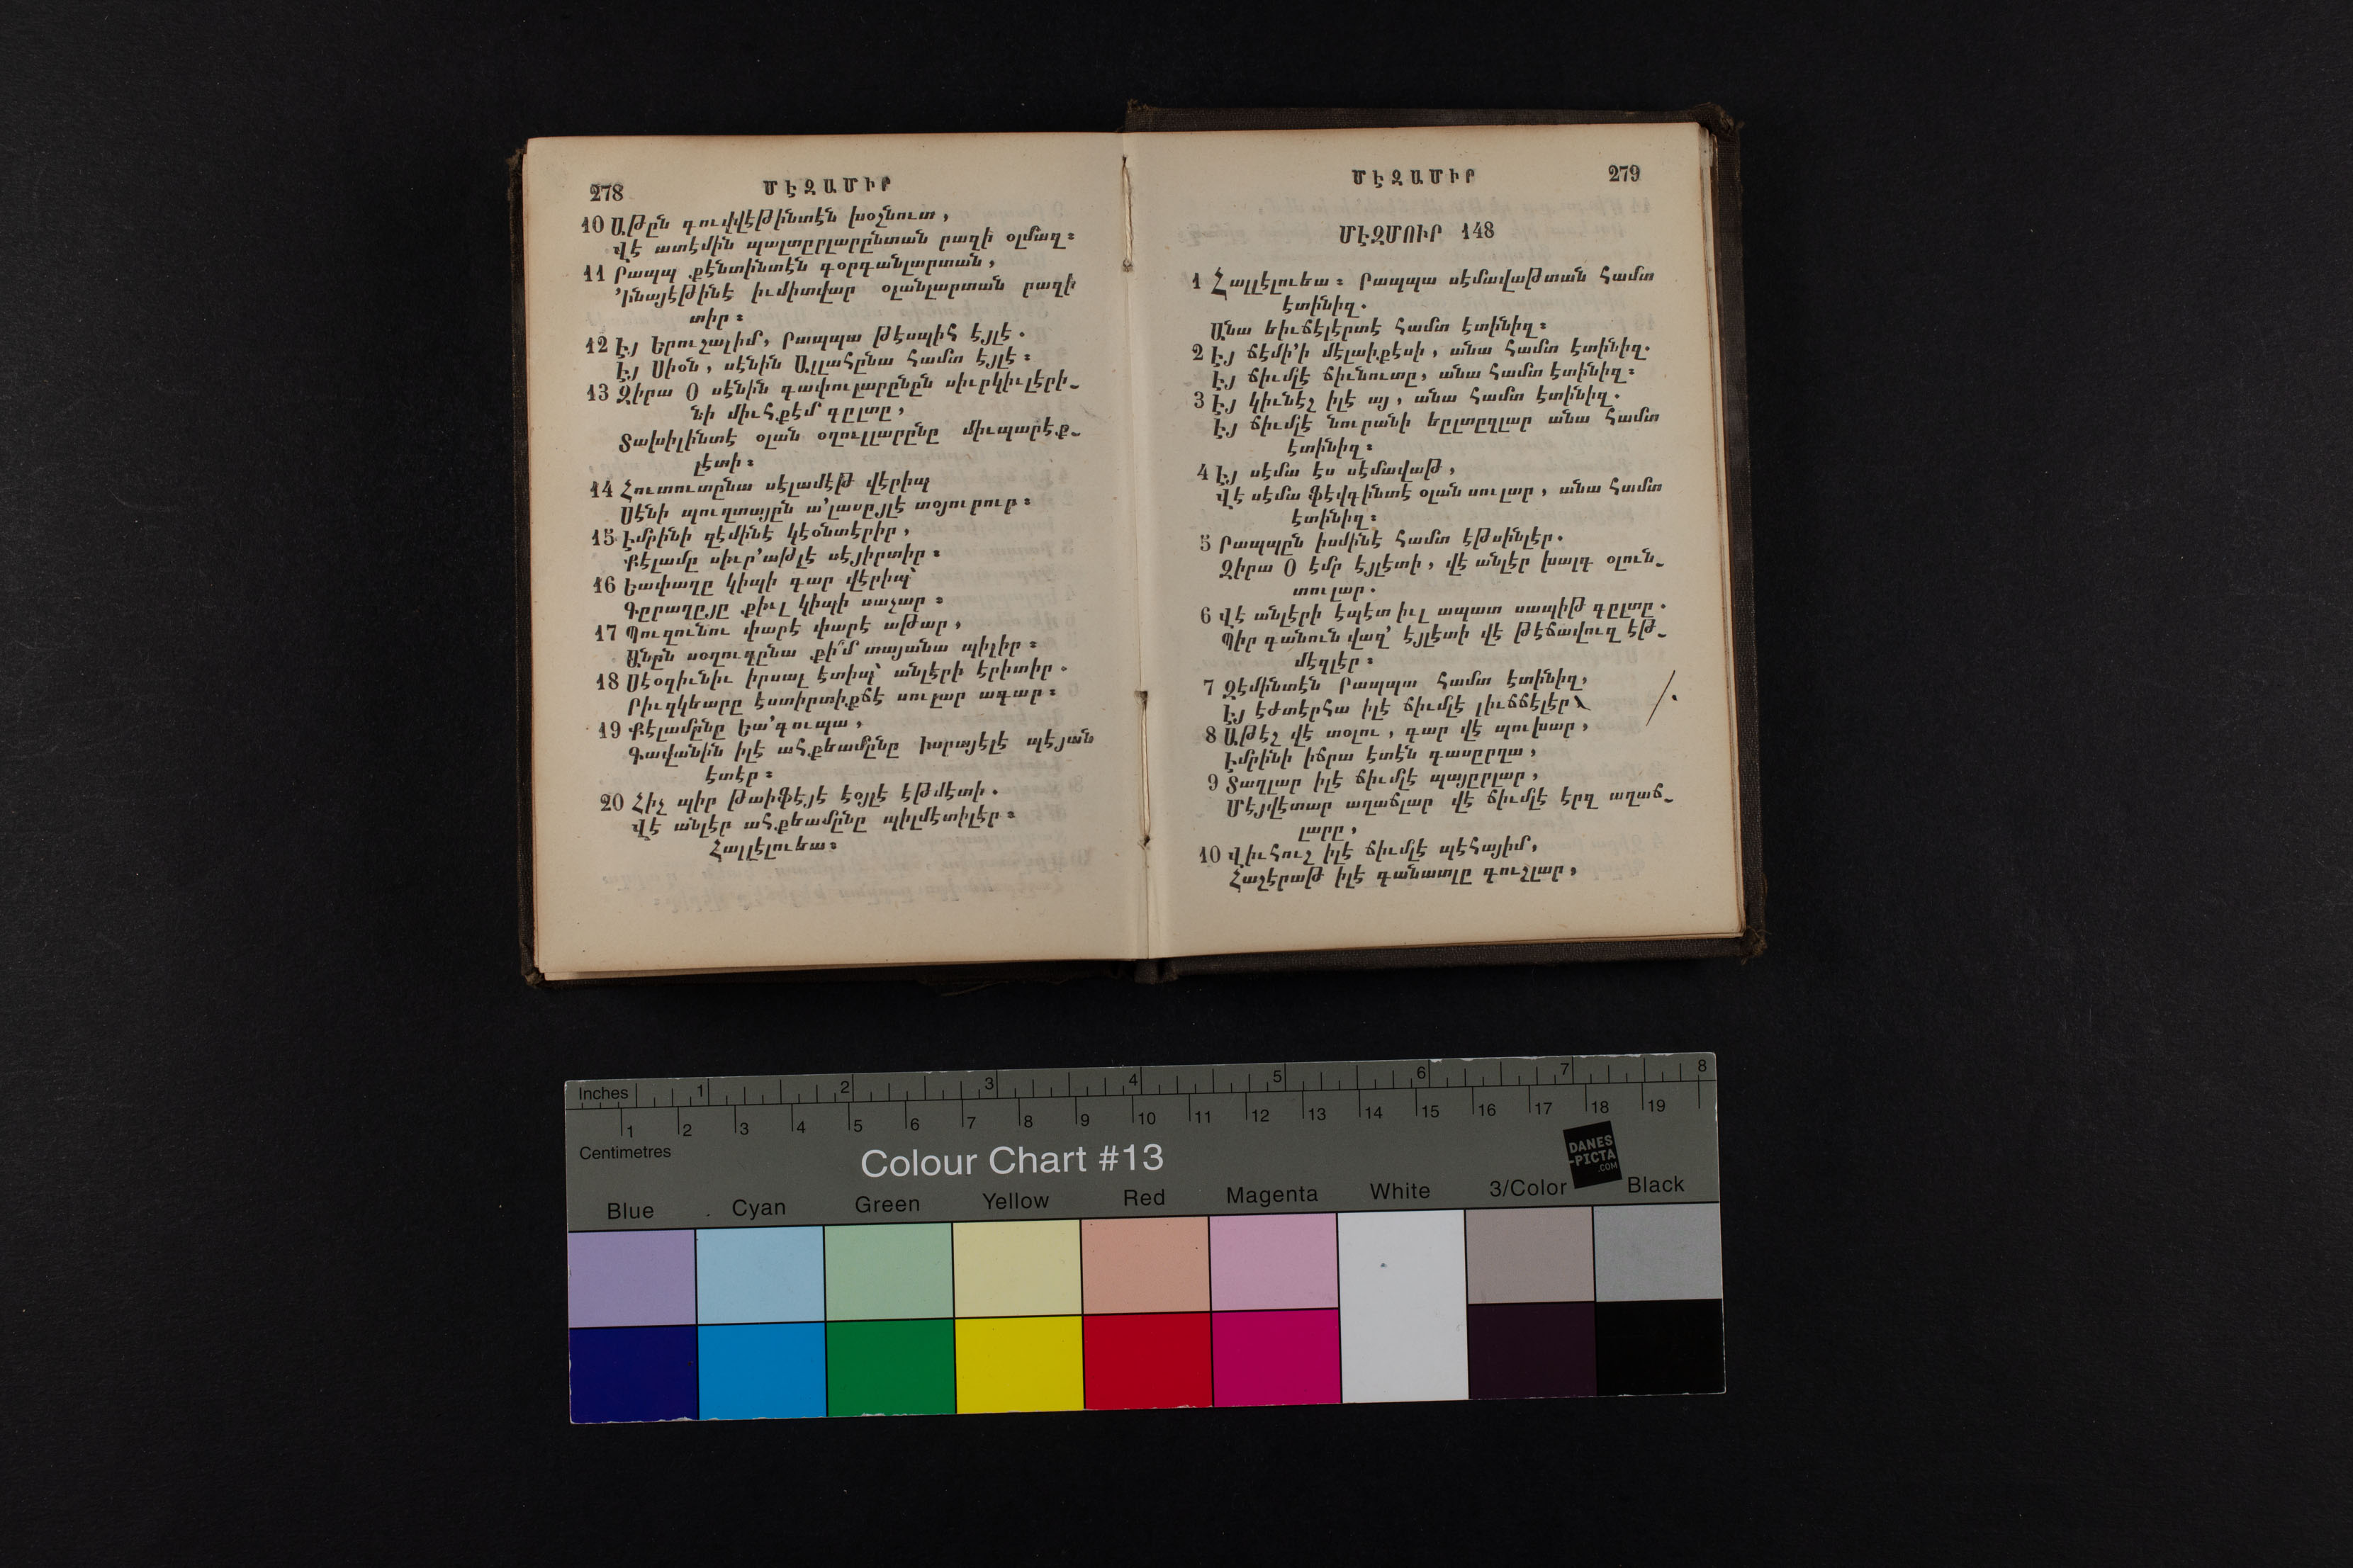 278 ՄԷԶԱՄԻՐ
10 Աթըն գուվվէթինտէն խօշնուտ,
Վէ ատէմին պալտըրլարընտան րազի օլմազ։
11 Րապպ քէնտինտէն գօրգանլարտան,
'Ինայէթինէ իւմիտվար օլանլարտան րազի
տիր։
12 Էյ Երուշալիմ, Րապպա թէսպիհ էյլէ.
Էյ Սիօն, սէնին Ալլահընա համտ էյլէ։
13 Զիրա Օ սէնին գափուլարընըն սիւրկիւլէրի֊
նի միւհքէմ գըլտը,
Տախիլինտէ օլան օղուլլարընը միւպարէք֊
լէտի։
14 Հուտուտընա սէլամէթ վէրիպ
Սէնի պուղտայըն ա՛լասըյլէ տօյուրուր։
15 Էմրինի զէմինէ կէօնտէրիր,
Քէլամը սիւր՛աթլէ սէյիրտիր։
16 Եափաղը կիպի գար վէրիպ՝
Գըրաղըյը քիւլ կիպի սաչար։
17 Պուզունու փարէ փարէ աթար,
Անըն սօղուղընա քի՞մ տայանա պիլիր։
18 Սէօզիւնիւ իրսալ էտիպ՝ անլէրի էրիտիր.
Րիւզկեարը էստիրտիքճէ սուլար ագար։
19 Քէլամընը Եա՛գուպա,
Գավանին իլէ ահքեամընը Իսրայէլէ պէյան
էտէր։
20 Հիչ պիր թաիֆէյէ էօյլէ էթմէտի.
Վէ անլէր ահքեամընը պիլմէտիլէր։
Հալլէլուեա։
ՄԷԶԱՄԻՐ 279
ՄԷԶՄՈՒՐ 148
1 Հալլէլուեա։ Րապպա սէմավաթտան համտ
էտինիզ.
Անա եիւճէլէրտէ համտ էտինիզ։
2 Էյ ճէմի՛ի մէլաիքէսի, անա համտ էտինիզ.
Էյ ճիւմլէ ճիւնուտը, անա համտ էտինիզ։
3 Էյ կիւնէշ իլէ այ, անա համտ էտինիզ.
Էյ ճիւմլէ նուրանի եըլտըզլար անա համտ
էտինիզ։
4 Էյ սէմա էս սէմավաթ,
Վէ սէմա ֆէվգինտէ օլան սուլար, անա համտ
էտինիզ։
5 Րապպըն իսմինէ համտ էթսինլէր.
Զիրա Օ էմր էյլէտի, վէ անլէր խալգ օլուն֊
տուլար.
6 Վէ անլէրի էպէտ իւլ ապատ սապիթ գըլտը.
Պիր գանուն վազ՛ էյլէտի վէ թէճավուզ էթ֊
մէզլէր։
7 Զէմինտէն Րապպա համտ էտինիզ,
Էյ էժտէրհա իլէ ճիւմլէ լիւճճէլէր
8 Աթէշ վէ տօլու, գար վէ պուխար,
Էմրինի իճրա էտէն գասըրղա,
9 Տաղլար իլէ ճիւմլէ պայըրլար,
Մէյվէտար աղաճլար վէ ճիւմլէ էրզ աղաճ֊
լարը,
10 Վիւհուշ իլէ ճիւմլէ պէհայիմ,
Հաշէրաթ իլէ գանատլը գուշլար,
Inches 1 2 3 4 5 6 7 8
1 2 3 4 5 6 7 8 9 10 11 12 13 14 15 16 17 18 19
Centimetres
Colour Chart #13
DANES
-PICTA
.COM
Blue Cyan Green Yellow Red Magenta White 3/Color Black